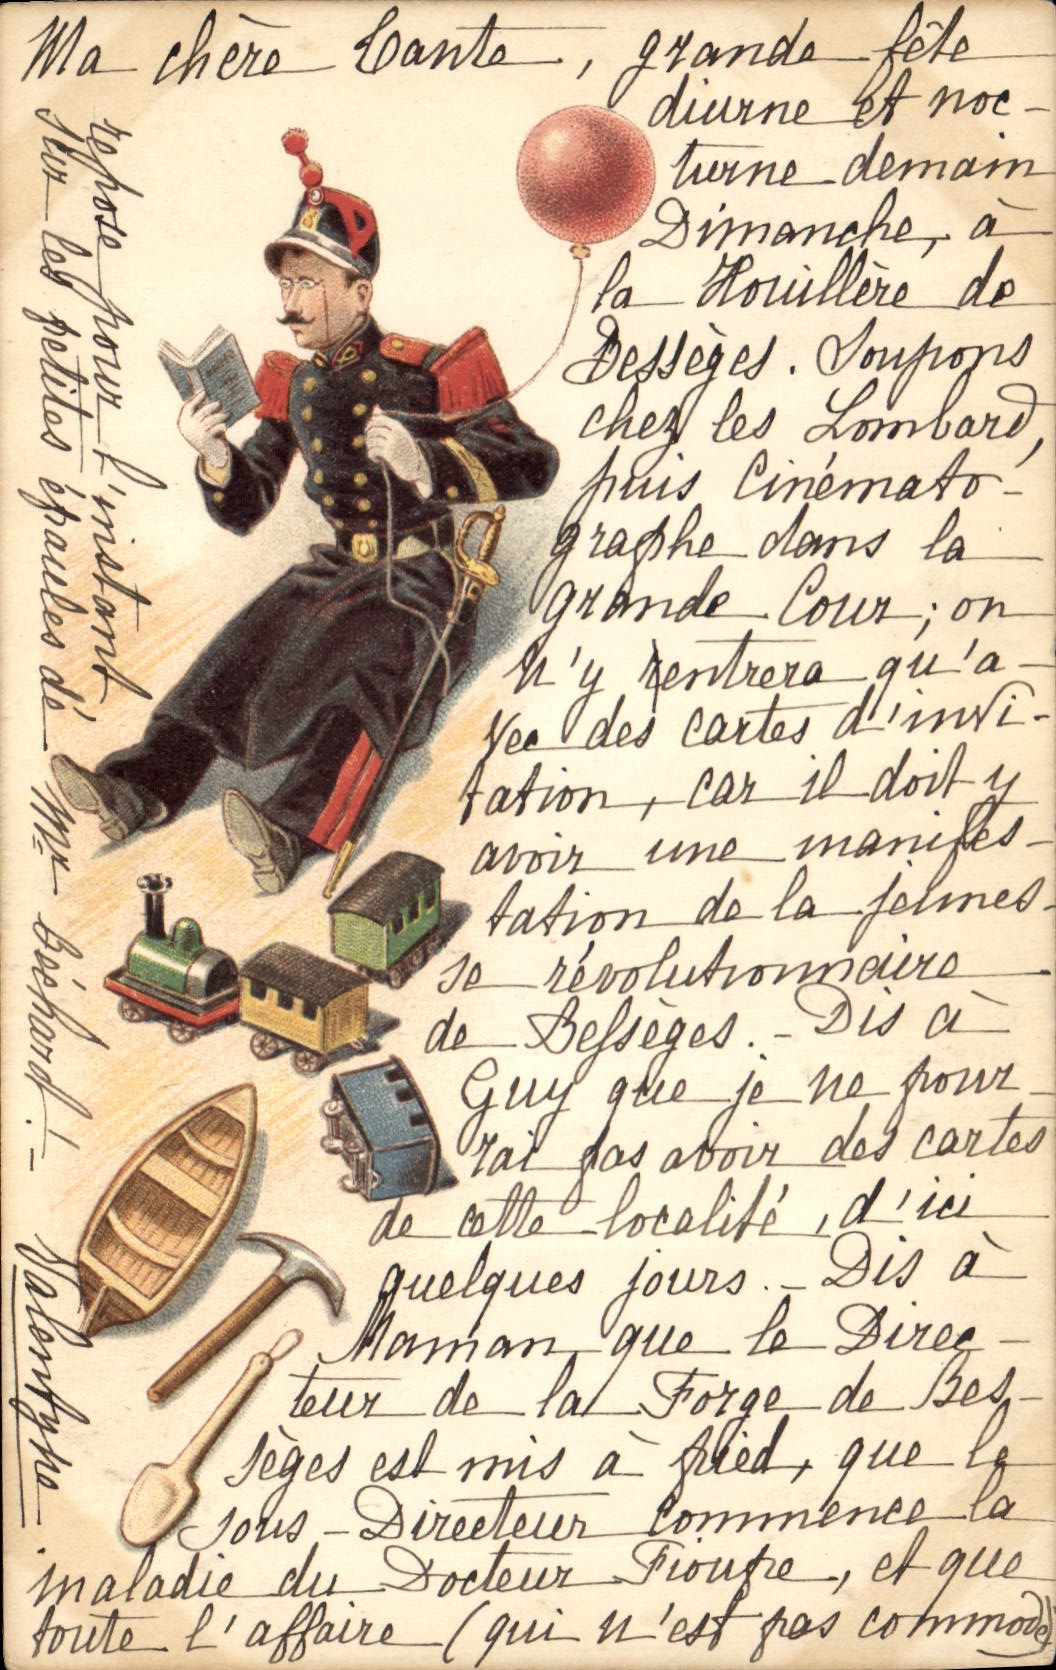 Ma chère Tante, grande fête
diurne et noc-
turne demain
Dimanche, à
la Houillère de
Bessèges. Soupons
chez les Lombard,
puis Cinémato-
graphe dans la
grande Cour; on
n'y rentrera qu'a-
vec des cartes d'invi-
tation, car il doit y
avoir une manifes-
tation de la jeunes-
se révolutionnaire
de Bessèges. - Dis à
Guy que je ne pour-
rai pas avoir des cartes
de cette localité, d'ici
quelques jours. - Dis à
Maman que le Direc-
teur de la Forge de Bes-
sèges est mis à pied, que le
sous-Directeur commence la
maladie du Docteur Fioupe, et que
toute l'affaire (qui n'est pas commode)
repose pour l'instant
sur les petites épaules de
Mr Béchard! -
Valentyne